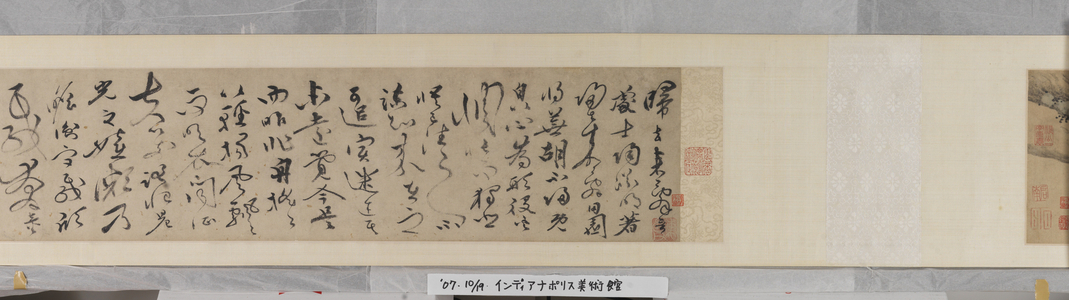 歸去來辭
處士陶淵明著
歸去來兮田園
將蕪胡不歸既
自以心為形役奚
惆悵而獨悲
悟已往之不
諫知來者之
可追實迷途其
未遠覺今是
而昨非舟搖搖
以輕颺風飄飄
而吹衣問征
夫以前路恨晨
光之熹微乃
瞻衡宇載欣
載奔
'07. 10/19. インディアナポリス美術館